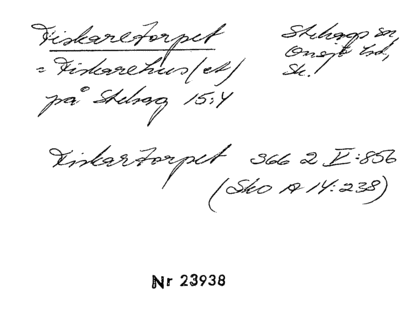 Fiskaretorpet
Stehags sn,
Onsjö hd,
Sk.
= Fiskarehus(et)
på Stehag 15:4
Fiskartorpet 366 2 V:856
(Sko A 14:238)
Nr 23938